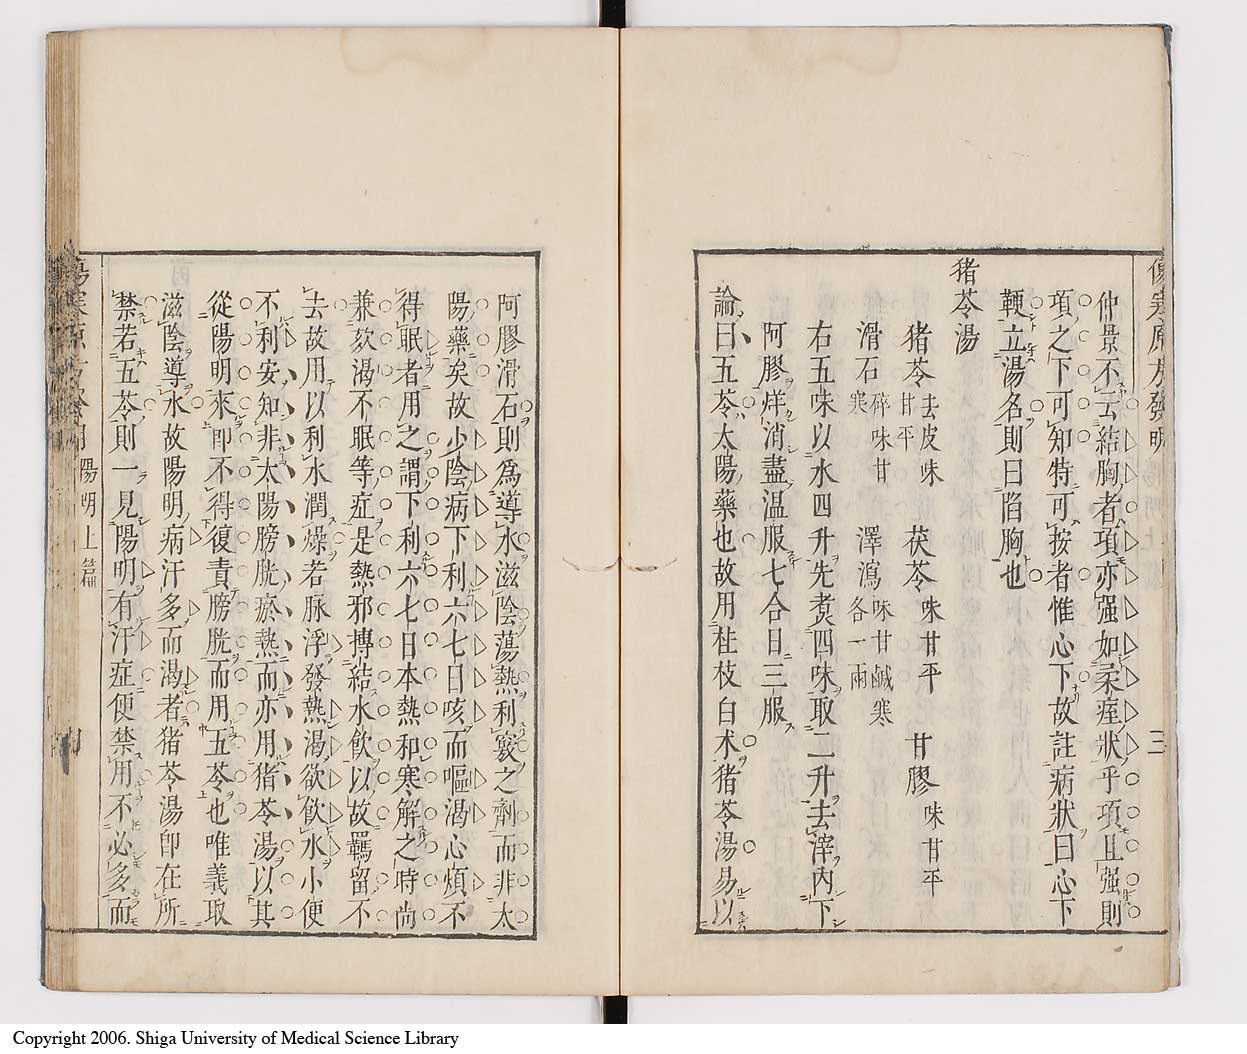 傷寒原方發明
三
仲景不云結胸者項亦强如柔痓狀乎項且强則
項之下可知特可按者惟心下故註病狀曰心下
鞕立湯名則曰陷胸也
猪苓湯
猪苓去皮味甘平 茯苓味甘平 甘膠味甘平
滑石碎味甘寒 澤瀉味甘鹹寒各一兩
右五味以水四升先煮四味取二升去滓內下
阿膠烊消盡温服七合日三服
論曰五苓太陽藥也故用桂枝白术猪苓湯易以
阿膠滑石則爲導水滋陰蕩熱利竅之劑而非太
陽藥矣故少陰病下利六七日咳而嘔渴心煩不
得眠者用之謂下利六七日本熱和寒解之時尚
兼欬渴不眠等症是熱邪摶結水飲以故羈留不
去故用以利水潤燥若脉浮發熱渴欲飲水小便
不利安知非太陽膀胱瘀熱而亦用猪苓湯以其
從陽明來卽不得復責膀胱而用五苓也唯義取
滋陰導水故陽明病汗多而渴者猪苓湯卽在所
禁若五苓則一見陽明有汗症便禁用不必多而
陽明上篇
Copyright 2006. Shiga University of Medical Science Library